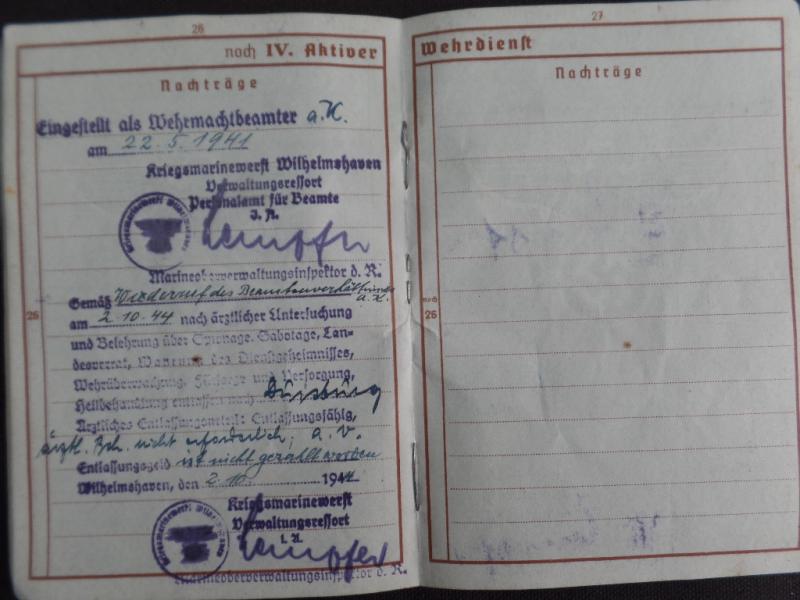 26
noch IV. Aktiver
Nachträge
Eingestellt als Wehrmachtbeamter a.K.
am 22.5.1941
Kriegsmarinewerft Wilhelmshaven
Verwaltungsressort
Personalamt für Beamte
J. A.
Marineoberverwaltungsinspektor d. R.
Gemäß Wiederruf des Beamtenverhältnisses a.K.
26 am 2.10.44 nach ärztlicher Untersuchung
und Belehrung über Spionage, Sabotage, Lan-
desverrat, Wahrung des Dienstgeheimnisses,
Wehrüberwachung, Fürsorge und Versorgung,
Heilbehandlung entlassen nach
Ärztliches Entlassungsurteil: Entlassungsfähig,
ärztl. Beh. nicht erforderlich, a. v.
Entlassungsgeld ist nicht gezahlt worden
Wilhelmshaven, den 2.10. 1944
Kriegsmarinewerft
Verwaltungsressort
i. A.
Marineoberverwaltungsinspektor d. R.
27
Wehrdienst
Nachträge
noch
26